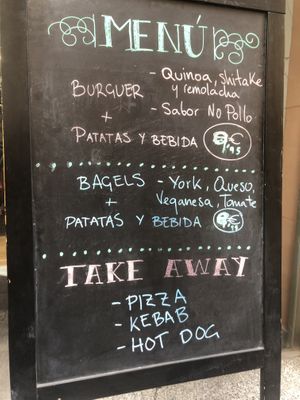 MENÚ
- Quinoa, shitake
BURGUER y remolacha
+ - Sabor No Pollo
PATATAS Y BEBIDA €
'45
BAGELS - York, Queso,
+ Veganesa, Tomate
PATATAS Y BEBIDA €
TAKE AWAY
- PIZZA
- KEBAB
- HOT DOG